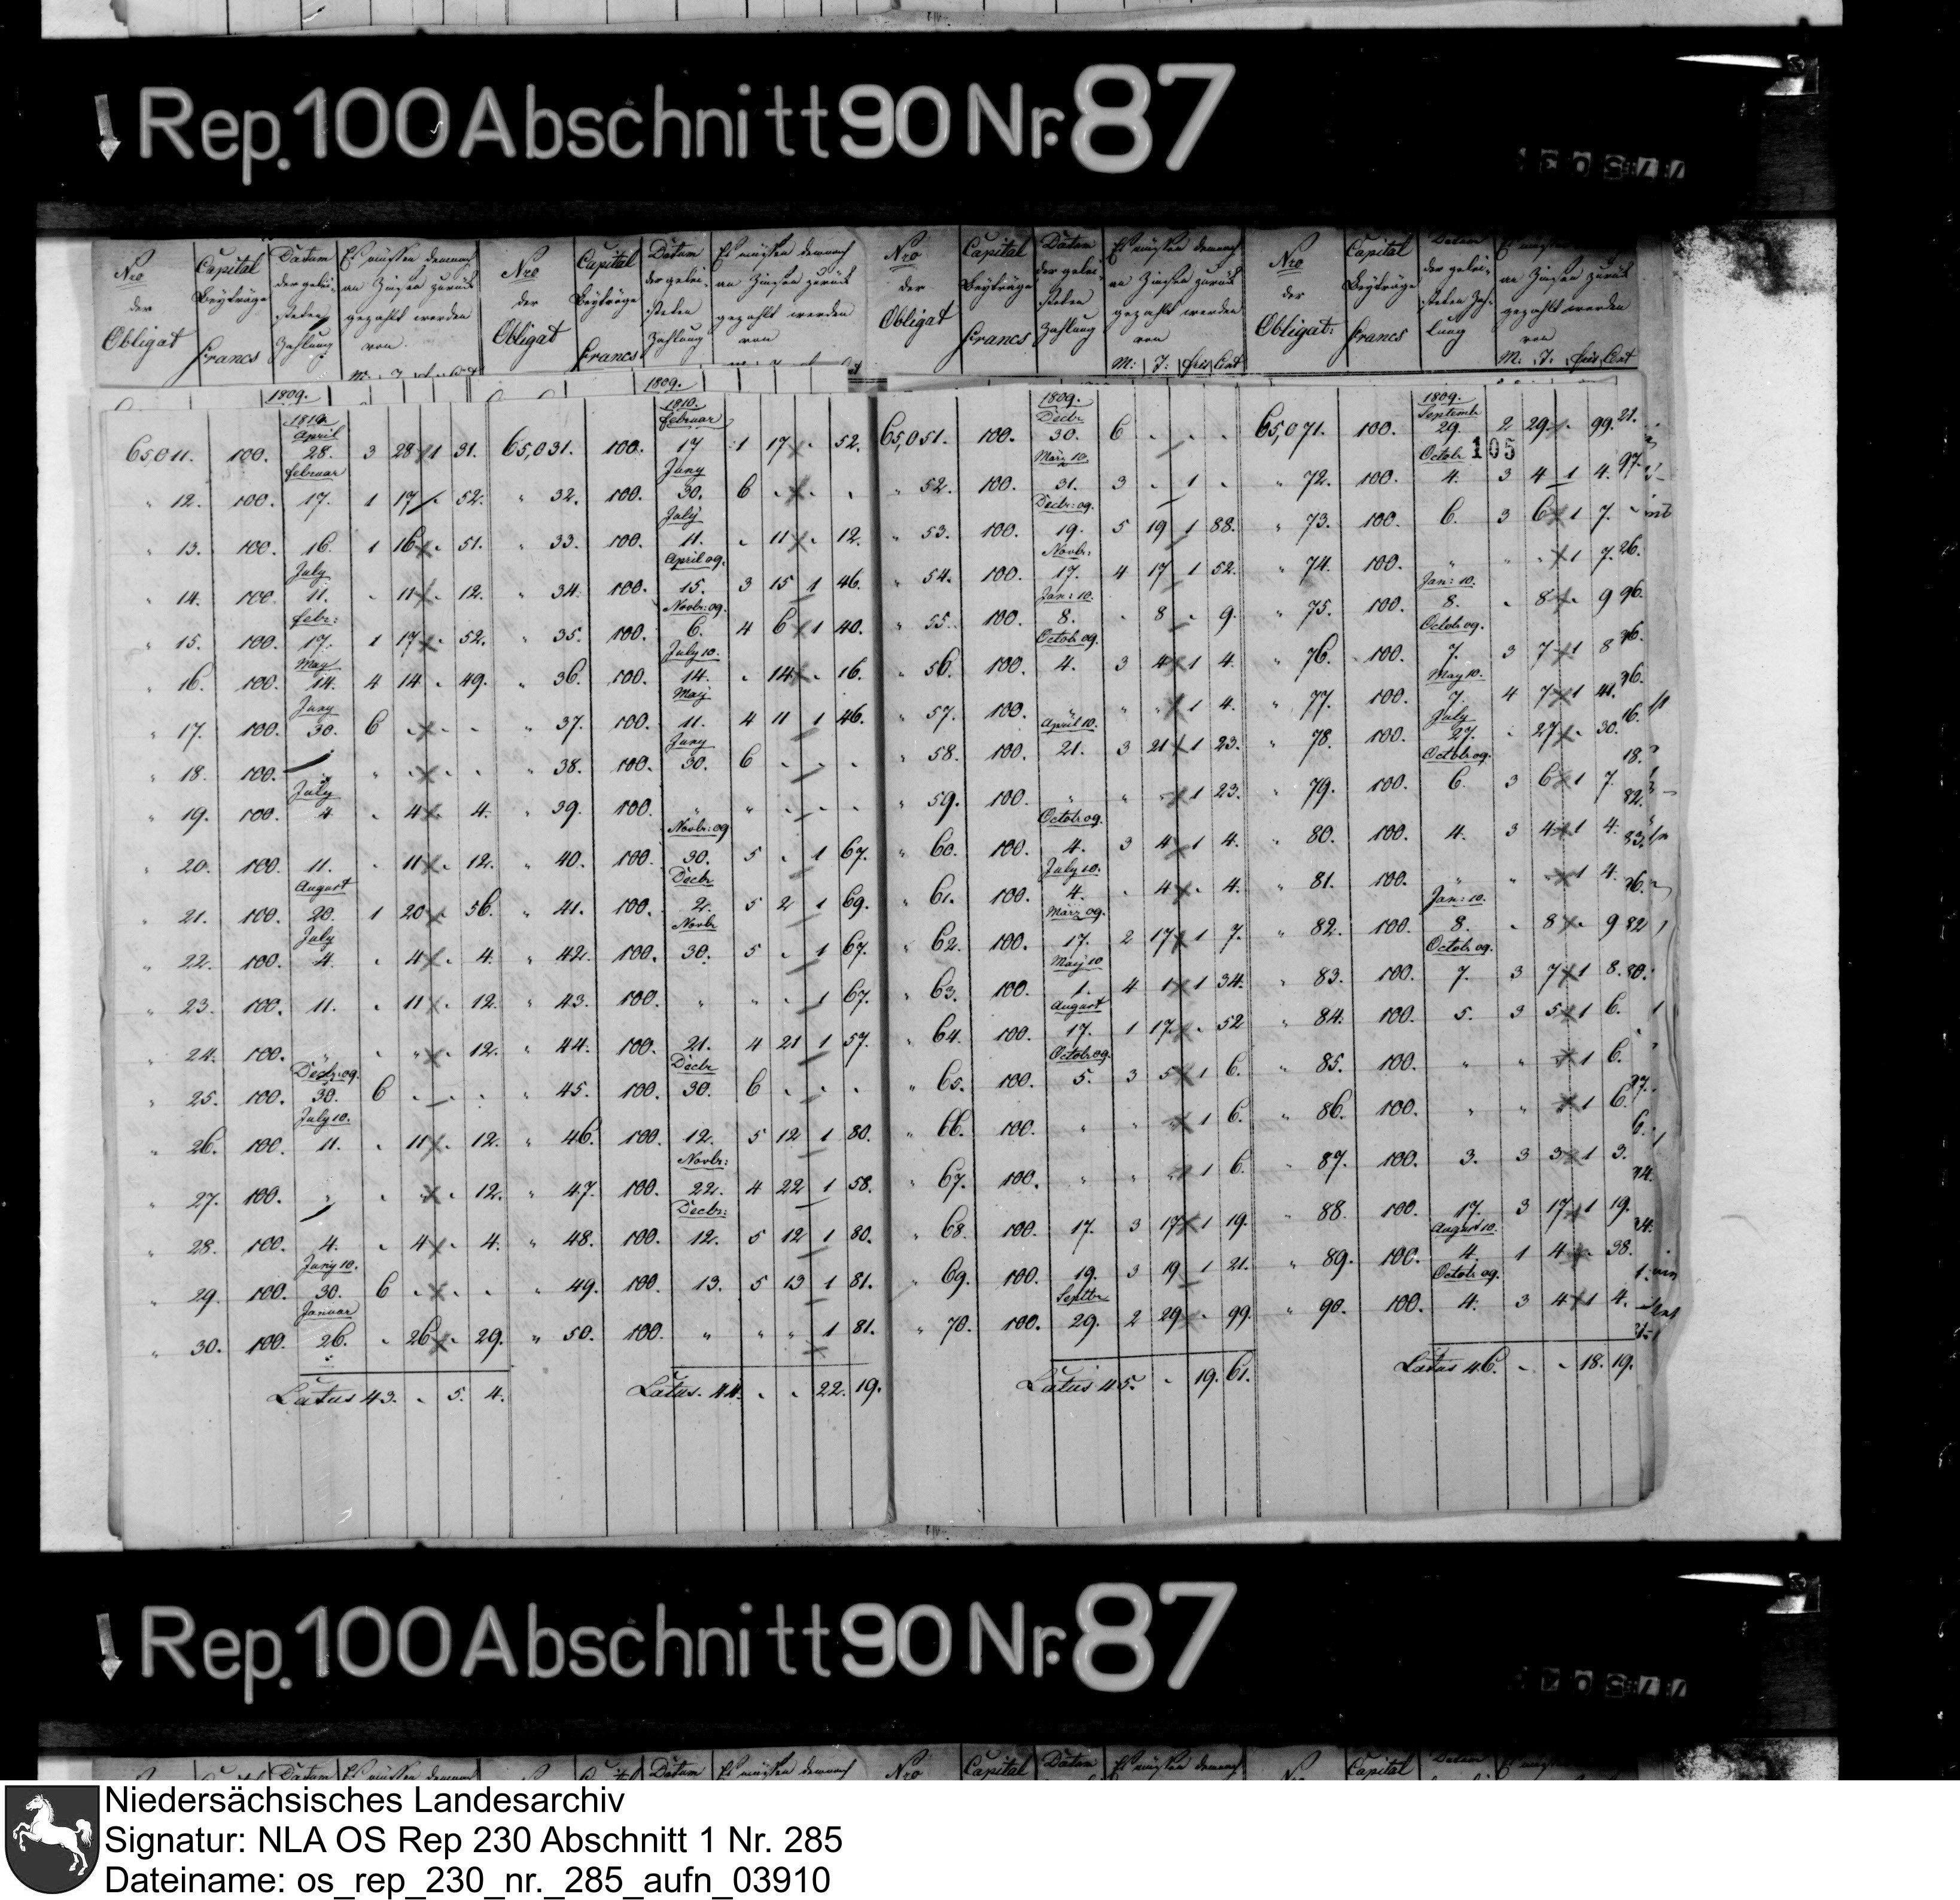 Rep. 100 Abschnitt 90 Nr. 87
Nro der Obligat
Capital Beyträge Francs
Datum der gelei- steten Zahlung
Es müssen demnach an Zinsen zurück gezahlt werden von
Nro der Obligat
Capital Beyträge Francs
Datum der gelei- steten Zahlung
Es müssen demnach an Zinsen zurück gezahlt werden von
Nro der Obligat
Capital Beyträge Francs
Datum der gelei- steten Zahlung
Es müssen demnach an Zinsen zurück gezahlt werden von
M: T: frcs Cent
Nro der Obligat.
Capital Beyträge Francs
Datum der gelei- steten Zah- lung
Es müssen an Zinsen zurück gezahlt werden von
M: T: frcs Cent
1809.
1810.
April
65,011. 100. 28. 3 28 1 31.
Februar
" 12. 100. 17. 1 17 - 52.
" 13. 100. 16. 1 16 - 51.
July
" 14. 100. 11. - 11 - 12.
Febr:
" 15. 100. 17. 1 17 - 52.
May
" 16. 100. 14. 4 14 - 49.
Juny
" 17. 100. 30. 6 - - -
" 18. 100. " " - - -
July
" 19. 100. 4 - 4 - 4.
" 20. 100. 11. - 11 - 12.
August
" 21. 100. 20. 1 20 - 56.
July
" 22. 100. 4. - 4 - 4.
" 23. 100. 11. - 11 - 12.
" 24. 100. " - " - 12.
Decbr. 09.
" 25. 100. 30. 6 - - -
July 10.
" 26. 100. 11. - 11 - 12.
" 27. 100. " - " - 12.
" 28. 100. 4. - 4 - 4.
Juny 10.
" 29. 100. 30. 6 - - -
Januar
" 30. 100. 26. - 26 - 29.
Latus 43. - 5. 4.
1809.
1810.
Februar
65,031. 100. 17 1 17 - 52.
Juny
" 32. 100. 30. 6 - - -
July
" 33. 100. 11. - 11 - 12.
April 09.
" 34. 100. 15. 3 15 1 46.
Novbr: 09.
" 35. 100. 6. 4 6 1 40.
July 10.
" 36. 100. 14. - 14 - 16.
May
" 37. 100. 11. 4 11 1 46.
Juny
" 38. 100. 30. 6 - - -
" 39. 100. " " - - -
Novbr: 09
" 40. 100. 30. 5 - 1 67.
Decbr
" 41. 100. 2. 5 2 1 69.
Novbr
" 42. 100. 30. 5 - 1 67.
" 43. 100. " " - 1 67.
" 44. 100. 21. 4 21 1 57.
Decbr
" 45. 100. 30. 6 - - -
" 46. 100. 12. 5 12 1 80.
Novbr:
" 47. 100. 22. 4 22 1 58.
Decbr:
" 48. 100. 12. 5 12 1 80.
" 49. 100. 13. 5 13 1 81.
" 50. 100. " " " 1 81.
Latus. 44. - - 22. 19.
1809.
Decbr
65,051. 100. 30. 6 - - -
März 10.
" 52. 100. 31. 3 - 1 -
Decbr: 09.
" 53. 100. 19. 5 19 1 88.
Novbr:
" 54. 100. 17. 4 17 1 52.
Jan: 10.
" 55. 100. 8. - 8 - 9.
Octob 09.
" 56. 100. 4. 3 4 1 4.
" 57. 100. " " " 1 4.
April 10.
" 58. 100. 21. 3 21 1 23.
" 59. 100. " " " 1 23.
Octob 09.
" 60. 100. 4. 3 4 1 4.
July 10.
" 61. 100. 4. - 4 - 4.
März 09.
" 62. 100. 17. 2 17 1 7.
May 10
" 63. 100. 1. 4 1 1 34.
August
" 64. 100. 17. 1 17 - 52
Octob 09
" 65. 100. 5. 3 5 1 6.
" 66. 100. " " " 1 6.
" 67. 100. " " " 1 6.
" 68. 100. 17. 3 17 1 19.
" 69. 100. 19. 3 19 1 21.
Septbr
" 70. 100. 29. 2 29 - 99.
Latus 45. - 19. 61.
1809.
Septemb
65,071. 100. 29. 2 29 - 99.
105
Octob
" 72. 100. 4. 3 4 1 4.
" 73. 100. 6. 3 6 1 7.
" 74. 100. " " " 1 7.
Jan: 10.
" 75. 100. 8. - 8 - 9
Octob 09.
" 76. 100. 7. 3 7 1 8
May 10.
" 77. 100. 7 4 7 1 41.
July
" 78. 100. 27. - 27 - 30.
Octob 09.
" 79. 100. 6. 3 6 1 7.
" 80. 100. 4. 3 4 1 4.
" 81. 100. " " " 1 4.
Jan: 10.
" 82. 100. 8. - 8 - 9
Octob 09.
" 83. 100. 7. 3 7 1 8.
" 84. 100. 5. 3 5 1 6.
" 85. 100. " " " 1 6.
" 86. 100. " " " 1 6.
" 87. 100. 3. 3 3 1 3.
" 88. 100. 17. 3 17 1 19.
August 10.
" 89. 100. 4. 1 4 - 38.
Octob 09.
" 90. 100. 4. 3 4 1 4.
Latus 46. - - 18. 19.
Rep. 100 Abschnitt 90 Nr. 87
Datum Es müssen demnach
Datum Es müssen demnach
Nro Capital Datum Es müssen demnach
Capital
Niedersächsisches Landesarchiv
Signatur: NLA OS Rep 230 Abschnitt 1 Nr. 285
Dateiname: os_rep_230_nr._285_aufn_03910